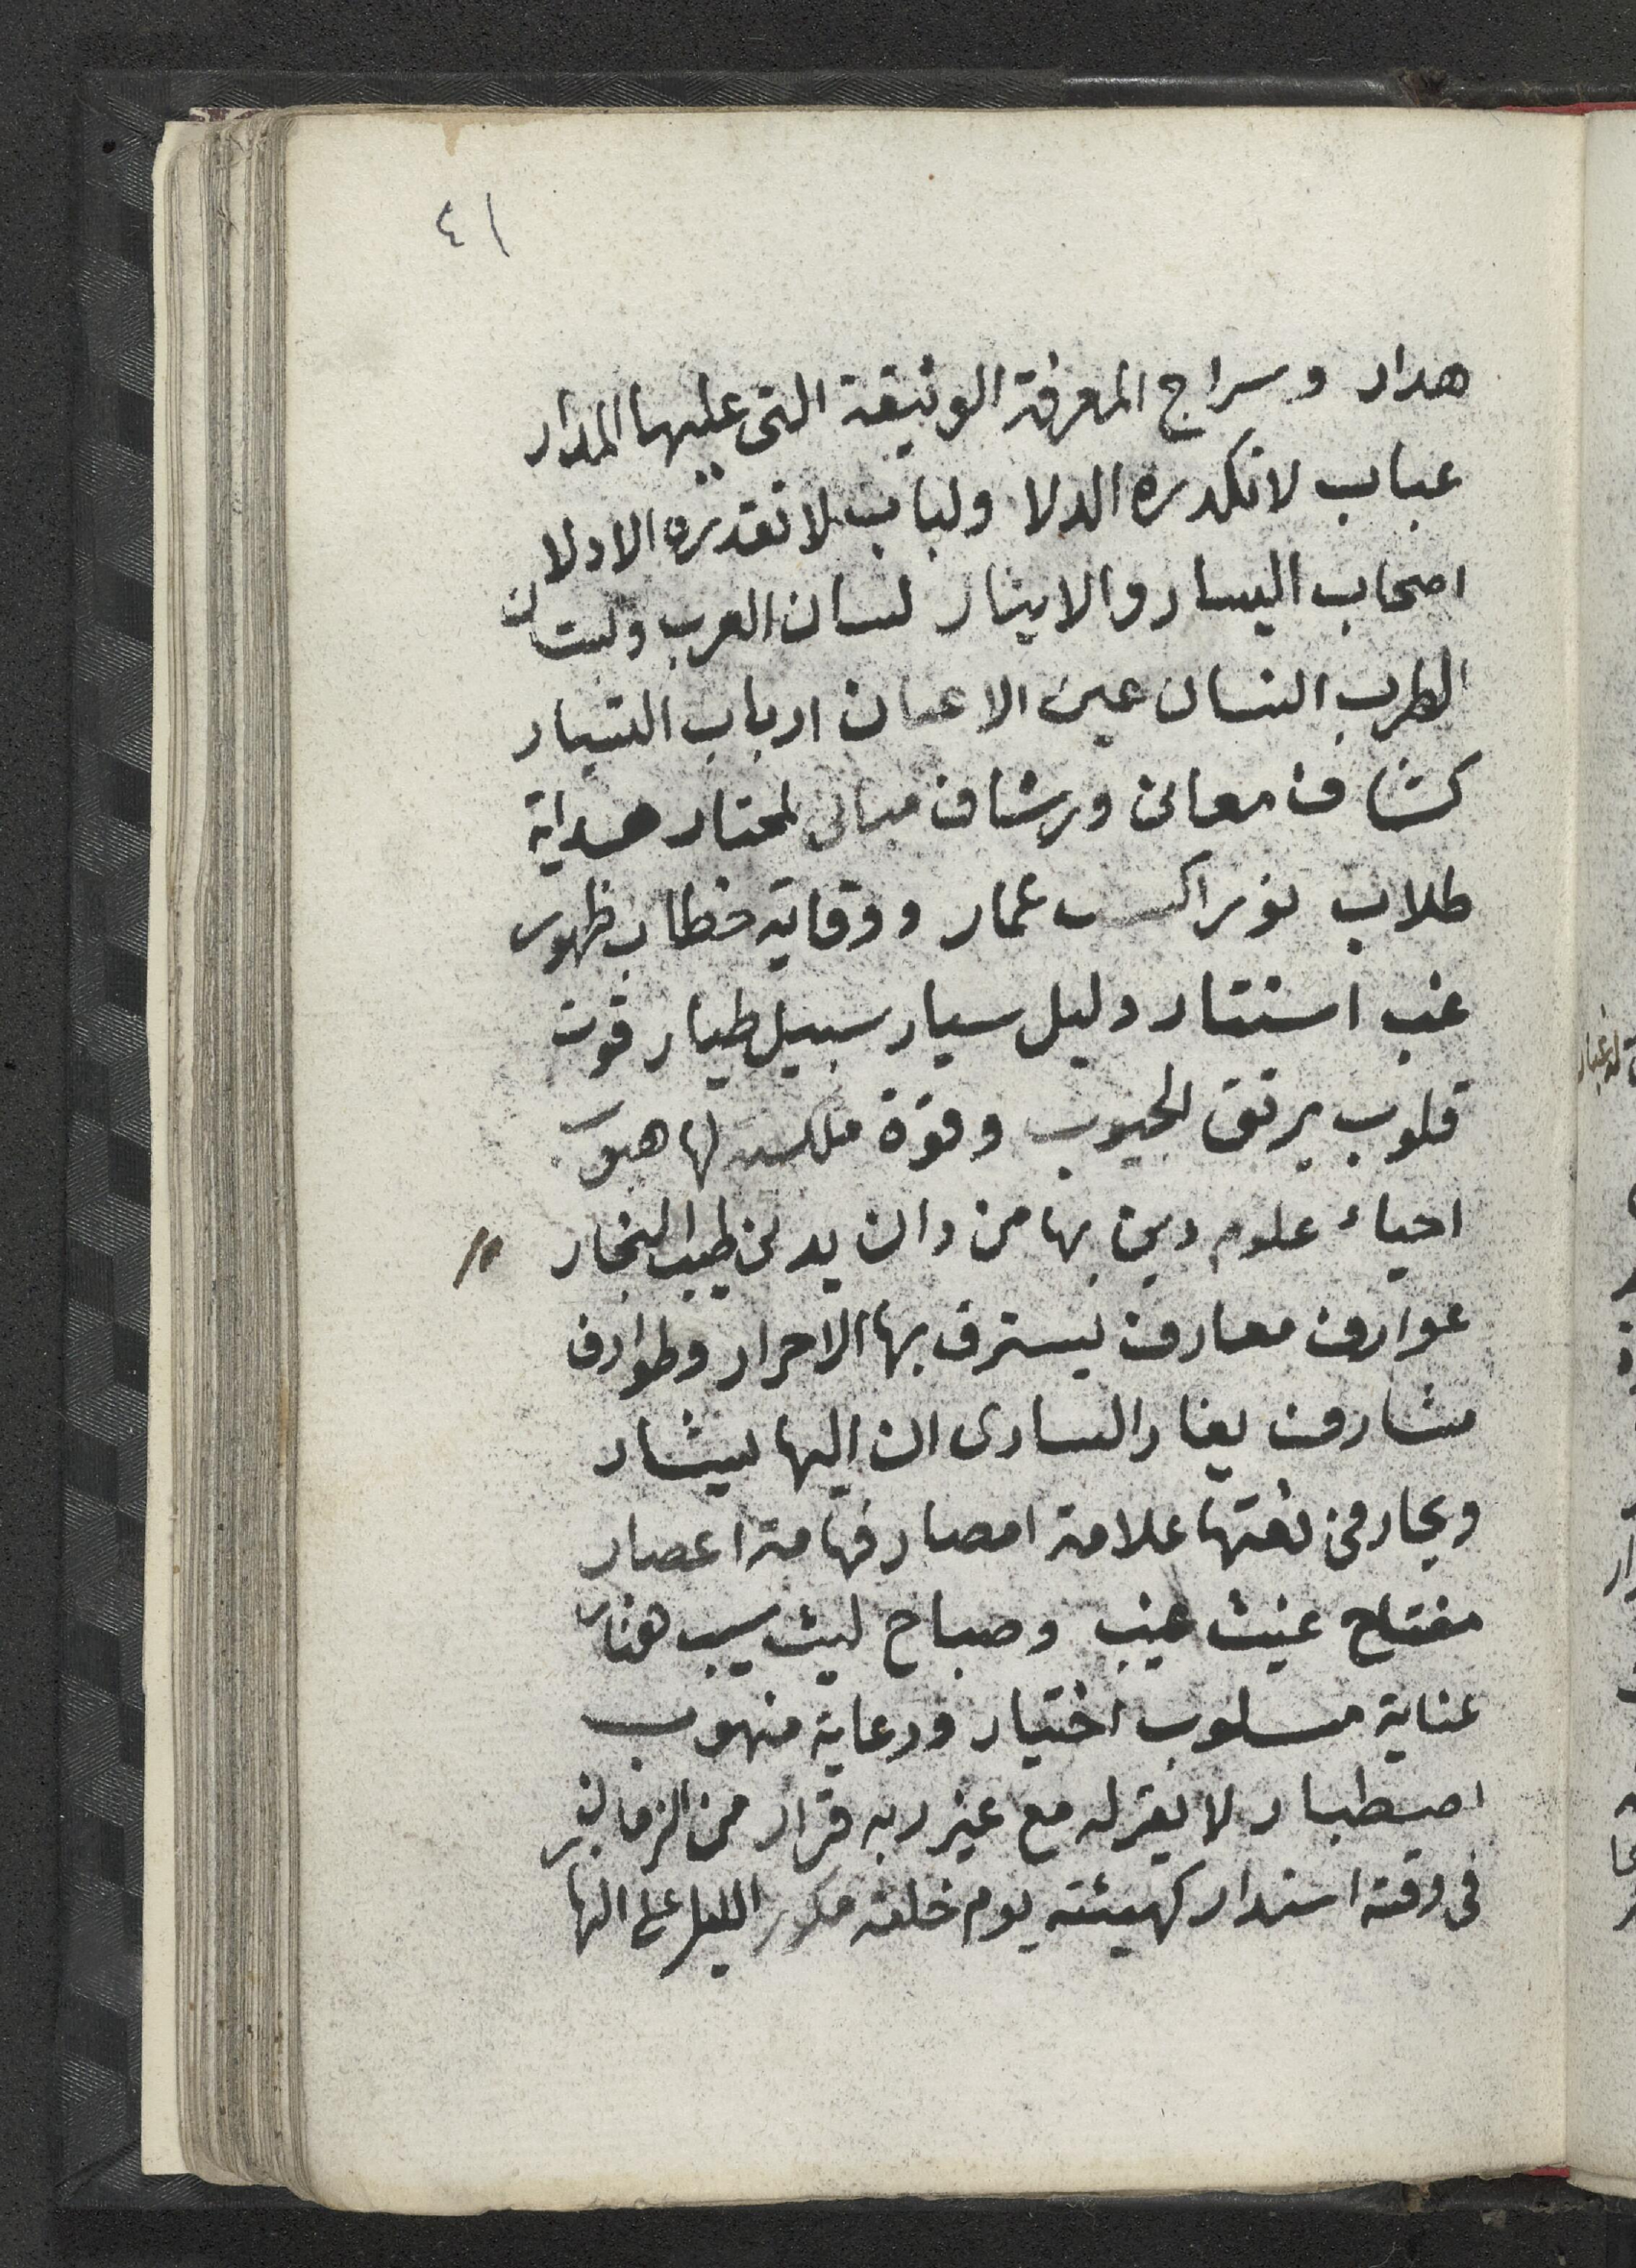 ٤١
هدار وسراج المعرفة الوثيقة التى عليها المدار
عباب لا تكدره الدلا ولباب لا تقدره الادلا
اصحاب اليسار والايثار لسان العرب وبستان
الطرب انسان عين الاعيان ارباب التيار
كشاف معانى ورشاف مبانى لمحتار هداية
طلاب نورا عمار ووقاية خطاب ظهور
غب استتار دليل سيار سبيل طيار قوت
قلوب برتق الجيوب وقوة لها هبوب
احياء علوم دين بها من دان يدلى طيب النجار
عوارف معارف يسترق بها الاحرار وطوارف
مشارف يغار السارى ان اليها يشار
ويحار فى نعتها علامة امصار فهامة اعصار
مفتاح غيث غيب وصباح ليث سيب هنار
عناية مسلوب اختيار ورعاية منهوب
اصطبار لا يقر له مع غير ربه قرار من الزمان
فى وقته استدار كهيئته يوم خلقه مكور الليل على النها